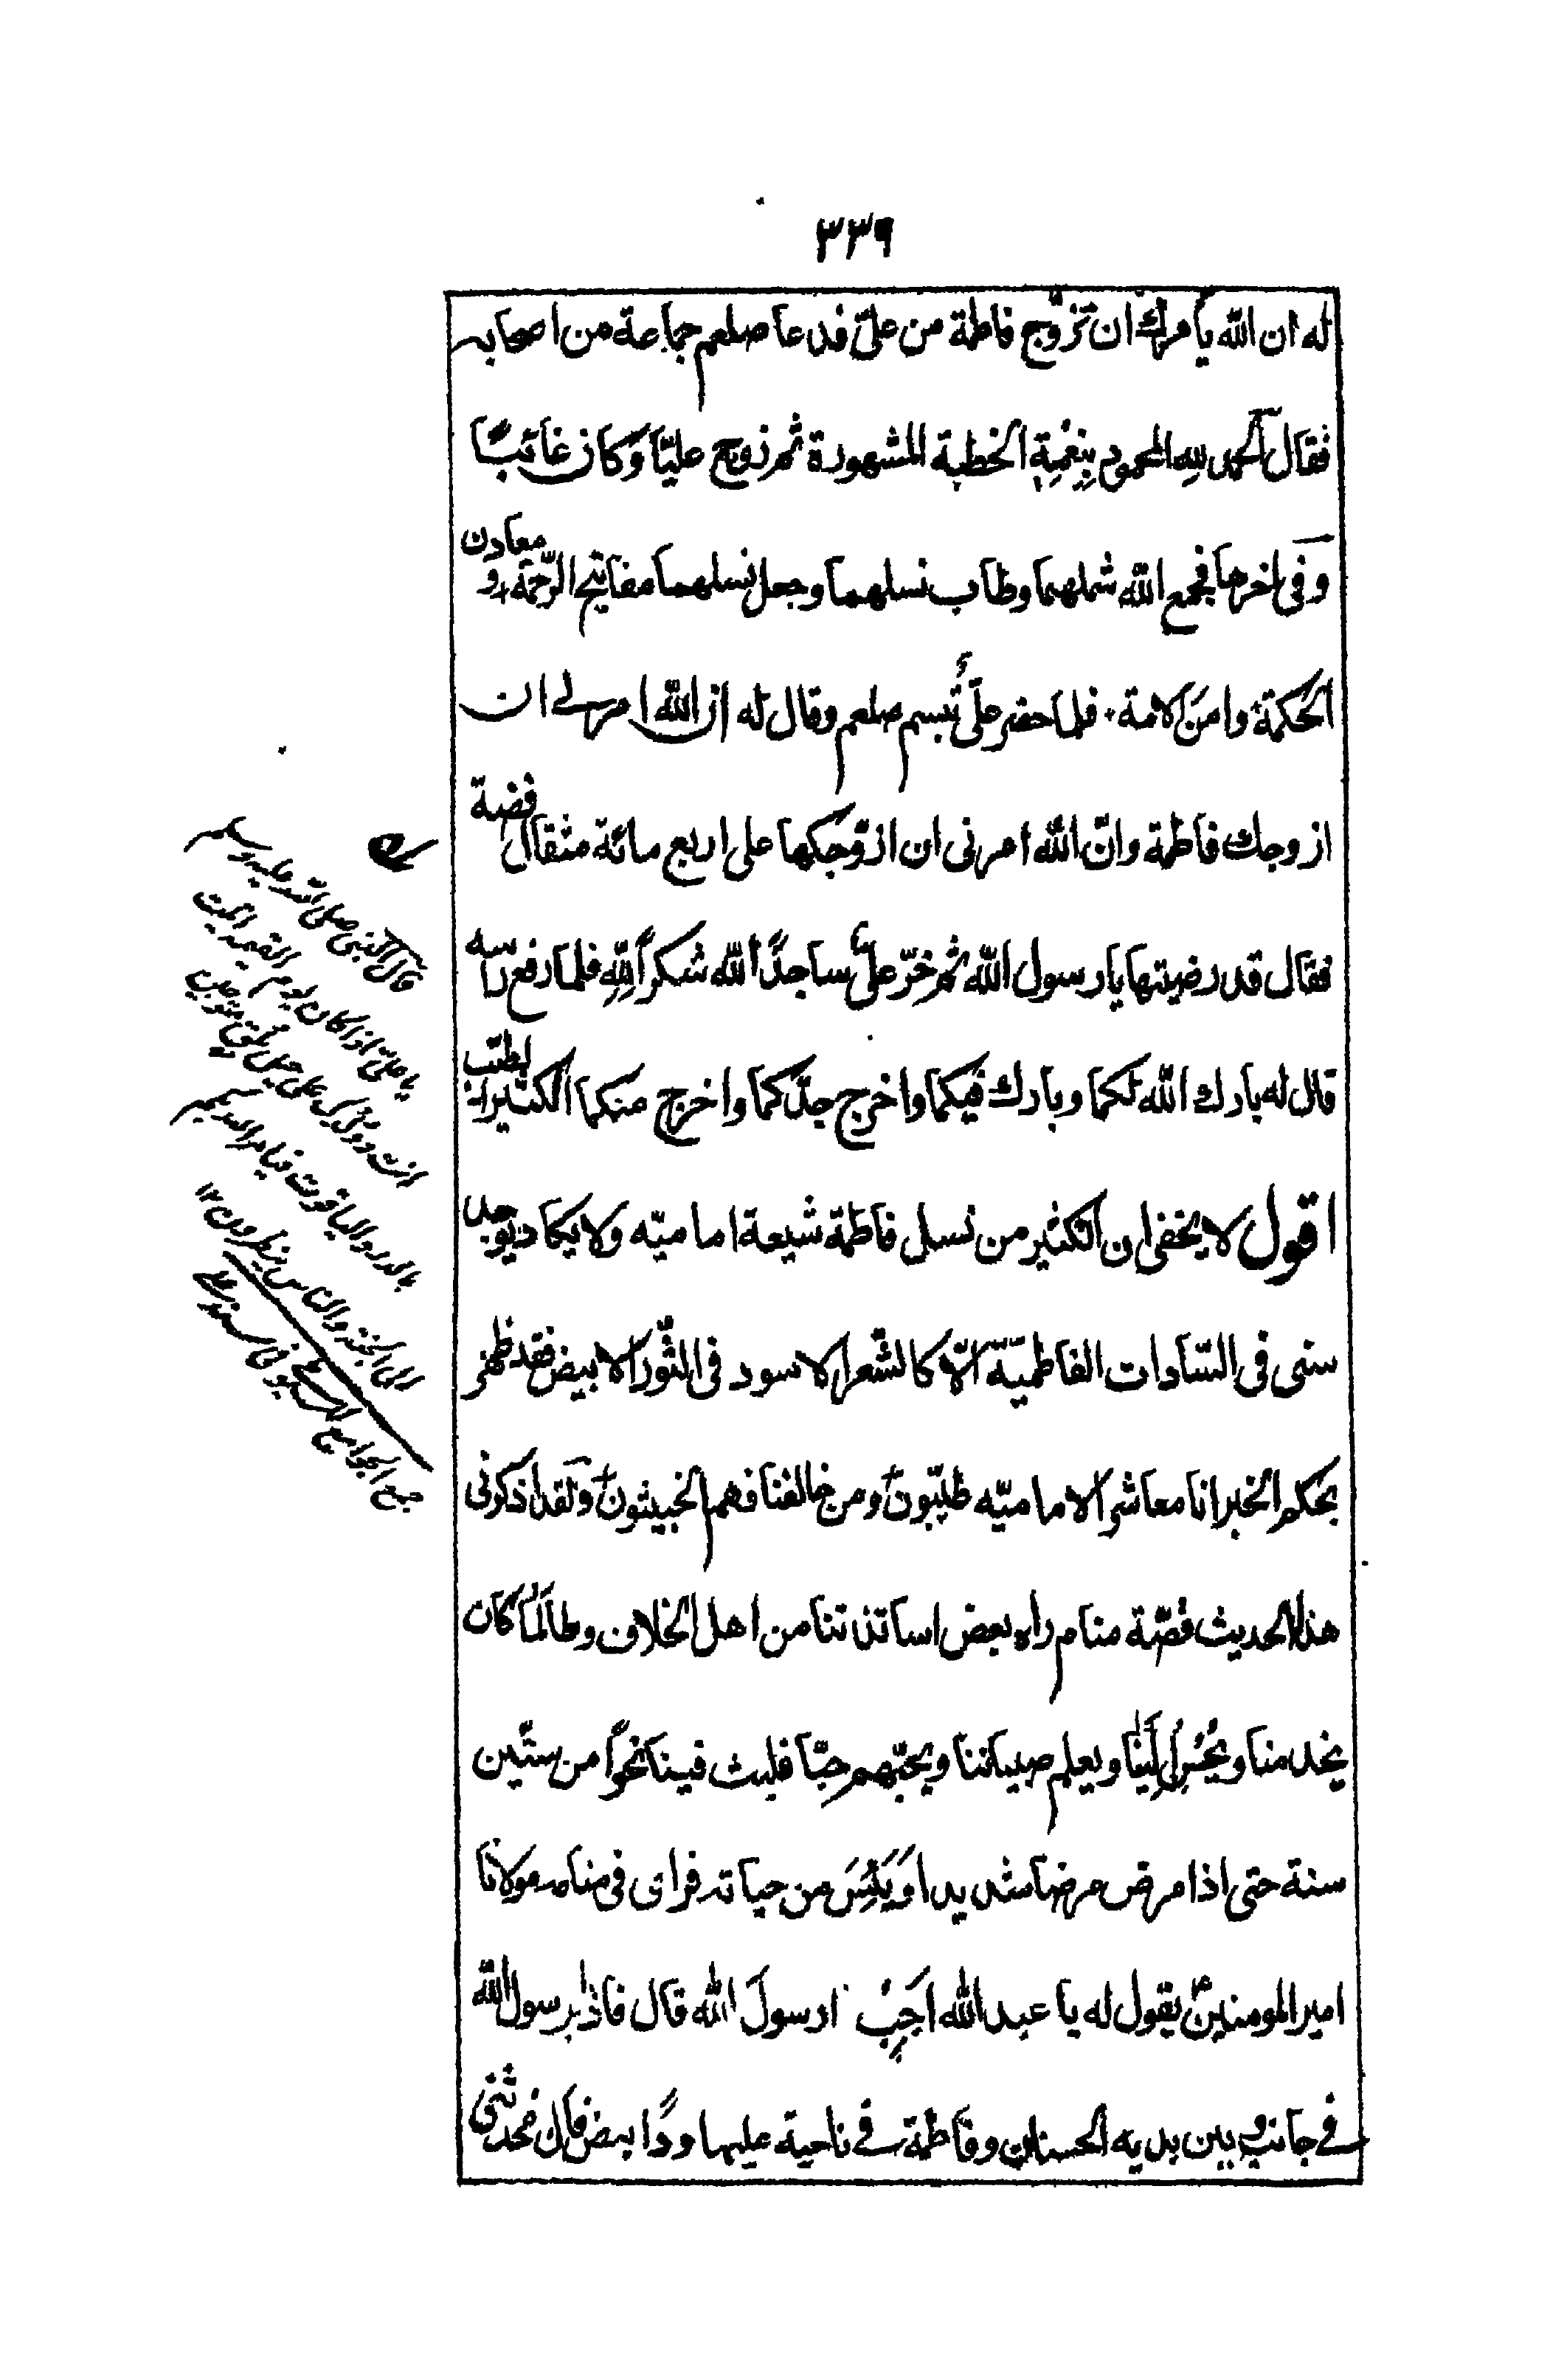 ٣٣٩
له ان الله يأمرك ان تزوّج فاطمة من علىّ فدعا صلعم جماعة من اصحابه
فقال الحمد لله المحمود بنِعْمَتِهِ الخطبة المشهورة ثم زوج عليّا وكان غائبًا
وفى اخرها فجمع الله شملهما وطاب نسلهما وجعل نسلهما مفاتيح الرّحمة و معادن
الحكمة وامن الامة فلما حضر علىّ تبسم صلعم وقال له ان الله امرنى ان
ازوجك فاطمة وانّ الله امرنى ان ازوّجكها على اربع مائة مثقال فضة
فقال قد رضيتها يا رسول الله ثم خرّ علىّ ساجدًا لله شكرًا لِلّهِ فلما رفع راسه
قال له بارك الله لكما وبارك فيكما واخرج جدّكما واخرج منكما الكثير الطيّب
اقول لا يخفى ان الكثير من نسل فاطمة شيعة اماميّه ولا يكاد يوجد
سنى فى السّادات الفاطميّة الّا كالشّعر الاسود فى الثّور الابيض فقد ظهر
بحكم الخبر انا معاشر الاماميّه طيّبون ومن خالفنا فهم الخبيثون ولقد اذكرنى
هذا الحديث قصّة منام راه بعض اساتذتنا من اهل الخلاف وطالما كان
يخدمنا ويُحْسِن اِلَيْنَا ويعلم صبياننا ويحبّهم حبّا فلبث فينا نحوًا من ستّين
سنة حتى اذا مرض مرضا شديدا وَيَئِسَ من حياته فراى فى منامه مولانا
امير المومنينؑ يقول له يا عبد الله اَجِبْ رسولَ الله قال فاذا برسول الله
فى جانب وبين يديه الحسنان وفاطمة فى ناحية عليها ردًا ابيض قال فحدثنى
قال النبى صلى الله عليه وسلم
يا علىّ اذا كان يوم القيمة اتيت
انت وولدك على خيل بلق متوجين
بالدر والياقوت فيامر الله بكم
الى الجنة والناس ينظرون ١٢
جمع الجوامع للسيوطى فى مسند على